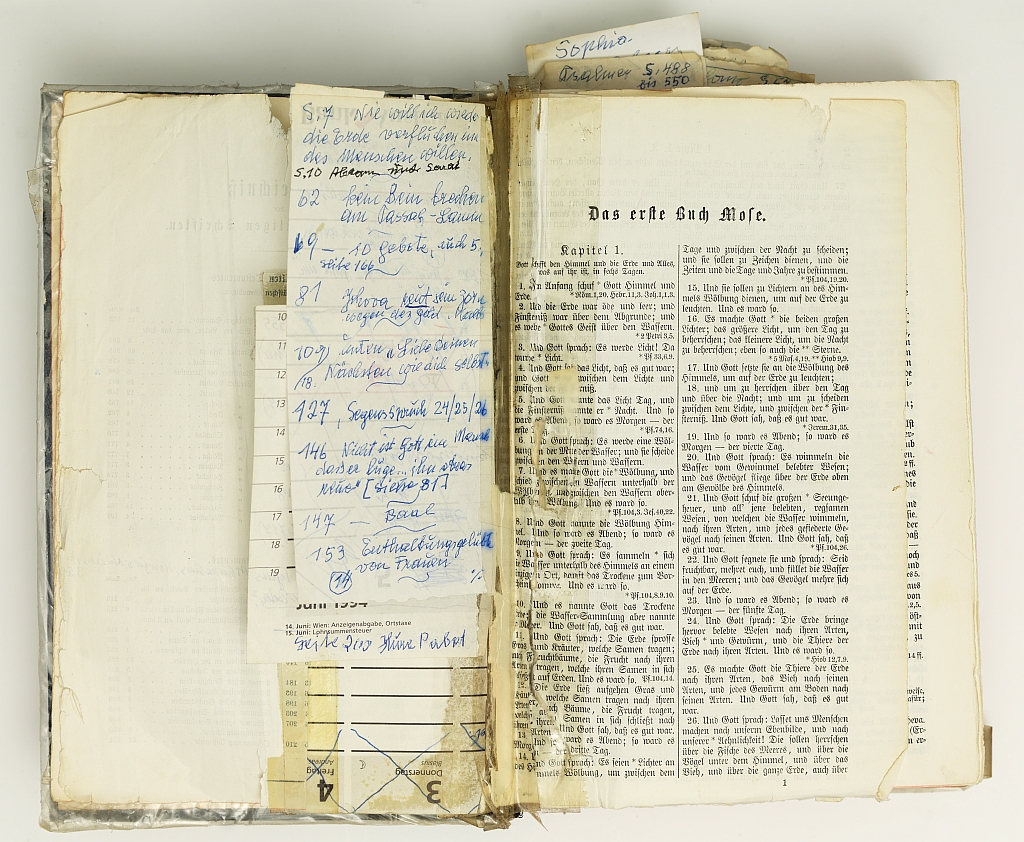 Sophia.
Psalmen S. 488
bis 550
S. 7 Nie will ich wieder
die Erde verfluchen um
des Menschen willen.
S. 10 Abram und Sarai
62 kein Bein brechen
am Passah-Lamm
69 — 10 Gebote, auch 5.
Seite 166
81 Jehova reut sein Zorn
wegen des gold.
109 unten „Liebe Deinen
/18. Nächsten wie dich selbst
127, Segensspruch 24/25/26
146 Nicht ist Gott ein Mensch
daß er lüge... ihn etwas
reue" [Siehe 81]
147 — Baal
153 Enthaltungsgelübde
von Frauen
(14)
10
11
12
13
14
15
16
17
18
19
Juni 1994
14. Juni: Wien: Anzeigenabgabe, Ortstaxe
15. Juni: Lohnsummensteuer
Seite 200 Hure Rahab
Freitag
4
Donnerstag
Blasius
3
Das erste Buch Mose.
Kapitel 1.
Gott schafft den Himmel und die Erde und Alles,
was auf ihr ist, in sechs Tagen.
1. Im Anfang schuf * Gott Himmel und
Erde. * Röm. 1,20. Hebr. 11,3. Joh. 1,1.3.
2. Und die Erde war öde und leer; und
Finsterniß war über dem Abgrunde; und
es webte * Gottes Geist über den Wassern.
* 2 Petri 3,5.
3. Und Gott sprach: Es werde Licht! Da
wurde * Licht. * Pf. 33,6.9.
4. Und Gott sah das Licht, daß es gut war;
und Gott zwischen dem Lichte und
zwischen der Finsterniß.
5. Und Gott nannte das Licht Tag, und
die Finsterniß nannte er * Nacht. Und so
ward es Abend, es ward es Morgen — der
erste Tag. * Pf. 74,16.
6. Und Gott sprach: Es werde eine Wöl-
bung in der Mitte der Wasser; und sie scheide
zwischen den Wassern und Wassern.
7. Und es machte Gott die * Wölbung, und
schied zwischen den Wassern unterhalb der
Wölbung und zwischen den Wassern ober-
halb der Wölbung. Und es ward so.
* Pf. 104,3. Jes. 40,22.
8. Und Gott nannte die Wölbung Him-
mel. Und so ward es Abend; so ward es
Morgen — der zweite Tag.
9. Und Gott sprach: Es sammeln * sich
die Wasser unterhalb des Himmels an einem
einzigen Ort, damit das Trockene zum Vor-
schein komme. Und es ward so.
* Pf. 104,8.9.10.
10. Und es nannte Gott das Trockene
Erde; die Wasser-Sammlung aber nannte
er Meer. Und Gott sah, daß es gut war.
11. Und Gott sprach: Die Erde sprosse
Gras und Kräuter, welche Samen tragen;
und Fruchtbäume, die Frucht nach ihren
Arten tragen, welche ihren Samen in sich
haben auf Erden. Und es ward so. Pf. 104,14.
12. Die Erde ließ aufgehen Gras und
Kräuter, welche Samen tragen nach ihren
Arten, auch Bäume, die Frucht tragen,
welche ihren Samen in sich schließt nach
ihren Arten. Und Gott sah, daß es gut war.
13. Und so ward es Abend; so ward es
Morgen — der dritte Tag.
14. Und Gott sprach: Es seien * Lichter an
des Himmels Wölbung, um zwischen dem
Tage und zwischen der Nacht zu scheiden;
und sie sollen zu Zeichen dienen, und die
Zeiten und die Tage und Jahre zu bestimmen.
* Pf. 104,19.20.
15. Und sie sollen zu Lichtern an des Him-
mels Wölbung dienen, um auf der Erde zu
leuchten. Und es ward so.
16. Es machte Gott * die beiden großen
Lichter; das größere Licht, um den Tag zu
beherrschen; das kleinere Licht, um die Nacht
zu beherrschen; eben so auch die ** Sterne.
* 5 Mos. 4,19. ** Hiob 9,9.
17. Und Gott setzte sie an die Wölbung des
Himmels, um auf der Erde zu leuchten;
18. und um zu herrschen über den Tag
und über die Nacht; und um zu scheiden
zwischen dem Lichte, und zwischen der * Fin-
sterniß. Und Gott sah, daß es gut war.
* Jerem. 31,35.
19. Und so ward es Abend; so ward es
Morgen — der vierte Tag.
20. Und Gott sprach: Es wimmeln die
Wasser vom Gewimmel belebter Wesen;
und das Gevögel fliege über der Erde oben
am Gewölbe des Himmels.
21. Und Gott schuf die großen * Seeunge-
heuer, und all' jene belebten, regsamen
Wesen, von welchen die Wasser wimmeln,
nach ihren Arten, und jedes gefiederte Ge-
vögel nach seinen Arten. Und Gott sah, daß
es gut war. * Pf. 104,26.
22. Und Gott segnete sie und sprach: Seid
fruchtbar, mehret euch, und füllet die Wasser
in den Meeren; und das Gevögel mehre sich
auf der Erde.
23. Und so ward es Abend; so ward es
Morgen — der fünfte Tag.
24. Und Gott sprach: Die Erde bringe
hervor belebte Wesen nach ihren Arten,
Vieh * und Gewürm, und die Thiere der
Erde nach ihren Arten. Und es ward so.
* Hiob 12,7.9.
25. Es machte Gott die Thiere der Erde
nach ihren Arten, das Vieh nach seinen
Arten, und jedes Gewürm am Boden nach
seinen Arten. Und Gott sah, daß es gut
war.
26. Und Gott sprach: Lasset uns Menschen
machen nach unserm Ebenbilde, und nach
unserer * Aehnlichkeit! Die sollen herrschen
über die Fische des Meeres, und über die
Vögel unter dem Himmel, und über das
Vieh, und über die ganze Erde, auch über
1